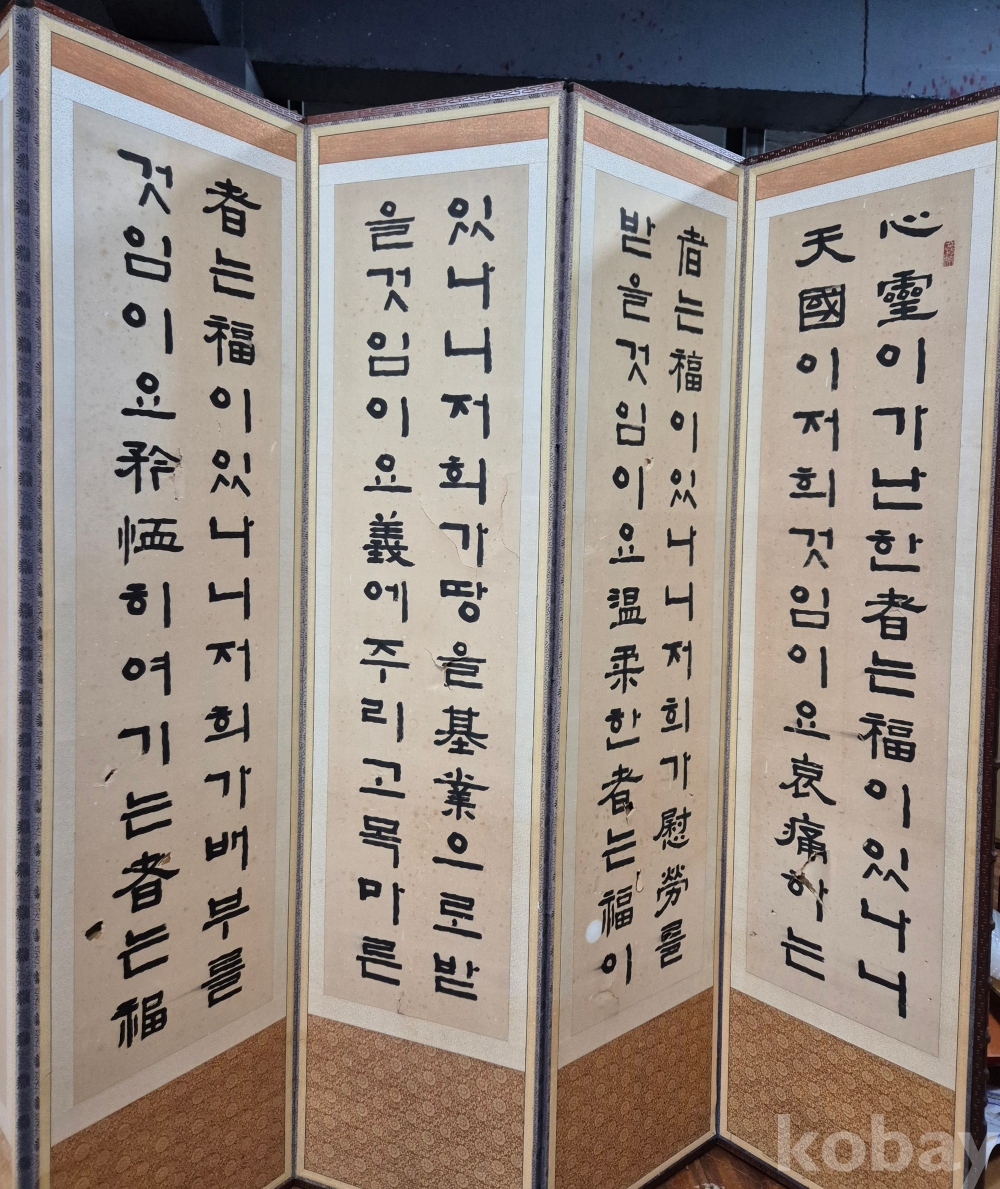 心靈이가난한者는福이있나니
天國이저희것임이요哀痛하는
者는福이있나니저희가慰勞를
받을것임이요温柔한者는福이
있나니저희가땅을基業으로받
을것임이요義에주리고목마른
者는福이있나니저희가배부를
것임이요矜恤히여기는者는福
kobay